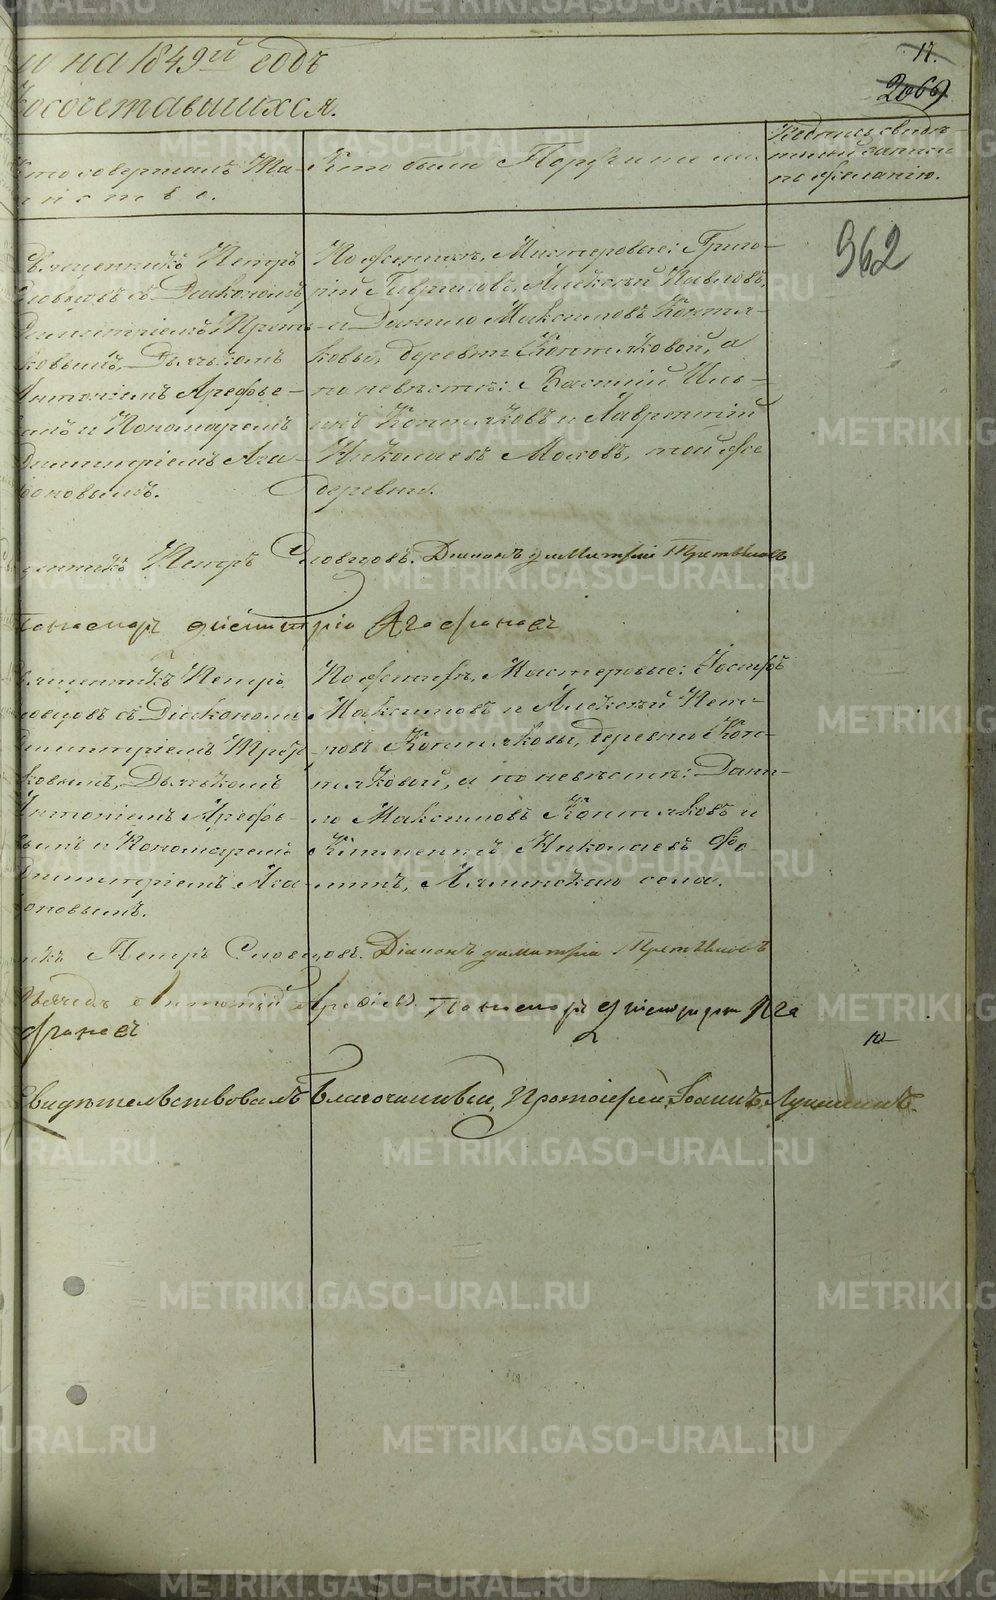 и на 1849ⁱй годъ
17.
косочетавшихся.
2069
Кто совершалъ Та-
инство.
Кто были Поручители
Подпись свидѣ-
телей записи
по желанію.
962
Священникъ Петръ
Словцовъ съ Діакономъ
Димитріемъ Третья-
ковымъ, Дьячкомъ
Антоніемъ Арефье-
вымъ и Пономаремъ
Димитріемъ Ага-
фоновымъ.
По женихѣ, Мастеровые: Григо-
рій Гавриловъ, Алексѣй Павловъ,
и Данило Максимовъ Коптя-
ковы, деревни Коптяковой, а
по невѣстѣ: Василій Иль-
инъ Коптяковъ и Лаврентій
Николаевъ Моховъ, той же
деревни.
Священникъ Петръ Словцовъ. Діаконъ Димитрій Третьяковъ
Пономарь Димитрій Агафоновъ
Священникъ Петръ
Словцовъ съ Діакономъ
Димитріемъ Третья-
ковымъ, Дьячкомъ
Антоніемъ Арефье-
вымъ и Пономаремъ
Димитріемъ Ага-
фоновымъ.
По женихѣ, Мастеровые: Іосифъ
Максимовъ и Алексѣй Пет-
ровъ Коптяковы, деревни Коп-
тяковой, а по невѣстѣ: Дани-
ло Максимовъ Коптяковъ и
Климентій Николаевъ Фо-
минъ, Лялинскаго села.
никъ Петръ Словцовъ. Діаконъ Димитрій Третьяковъ
Дьячекъ Антоній Арефьевъ. Пономарь Димитрій Ага
фоновъ
Свидѣтельствовалъ Благочинный, Протоіерей Іоаннъ
METRIKI.GASO-URAL.RU